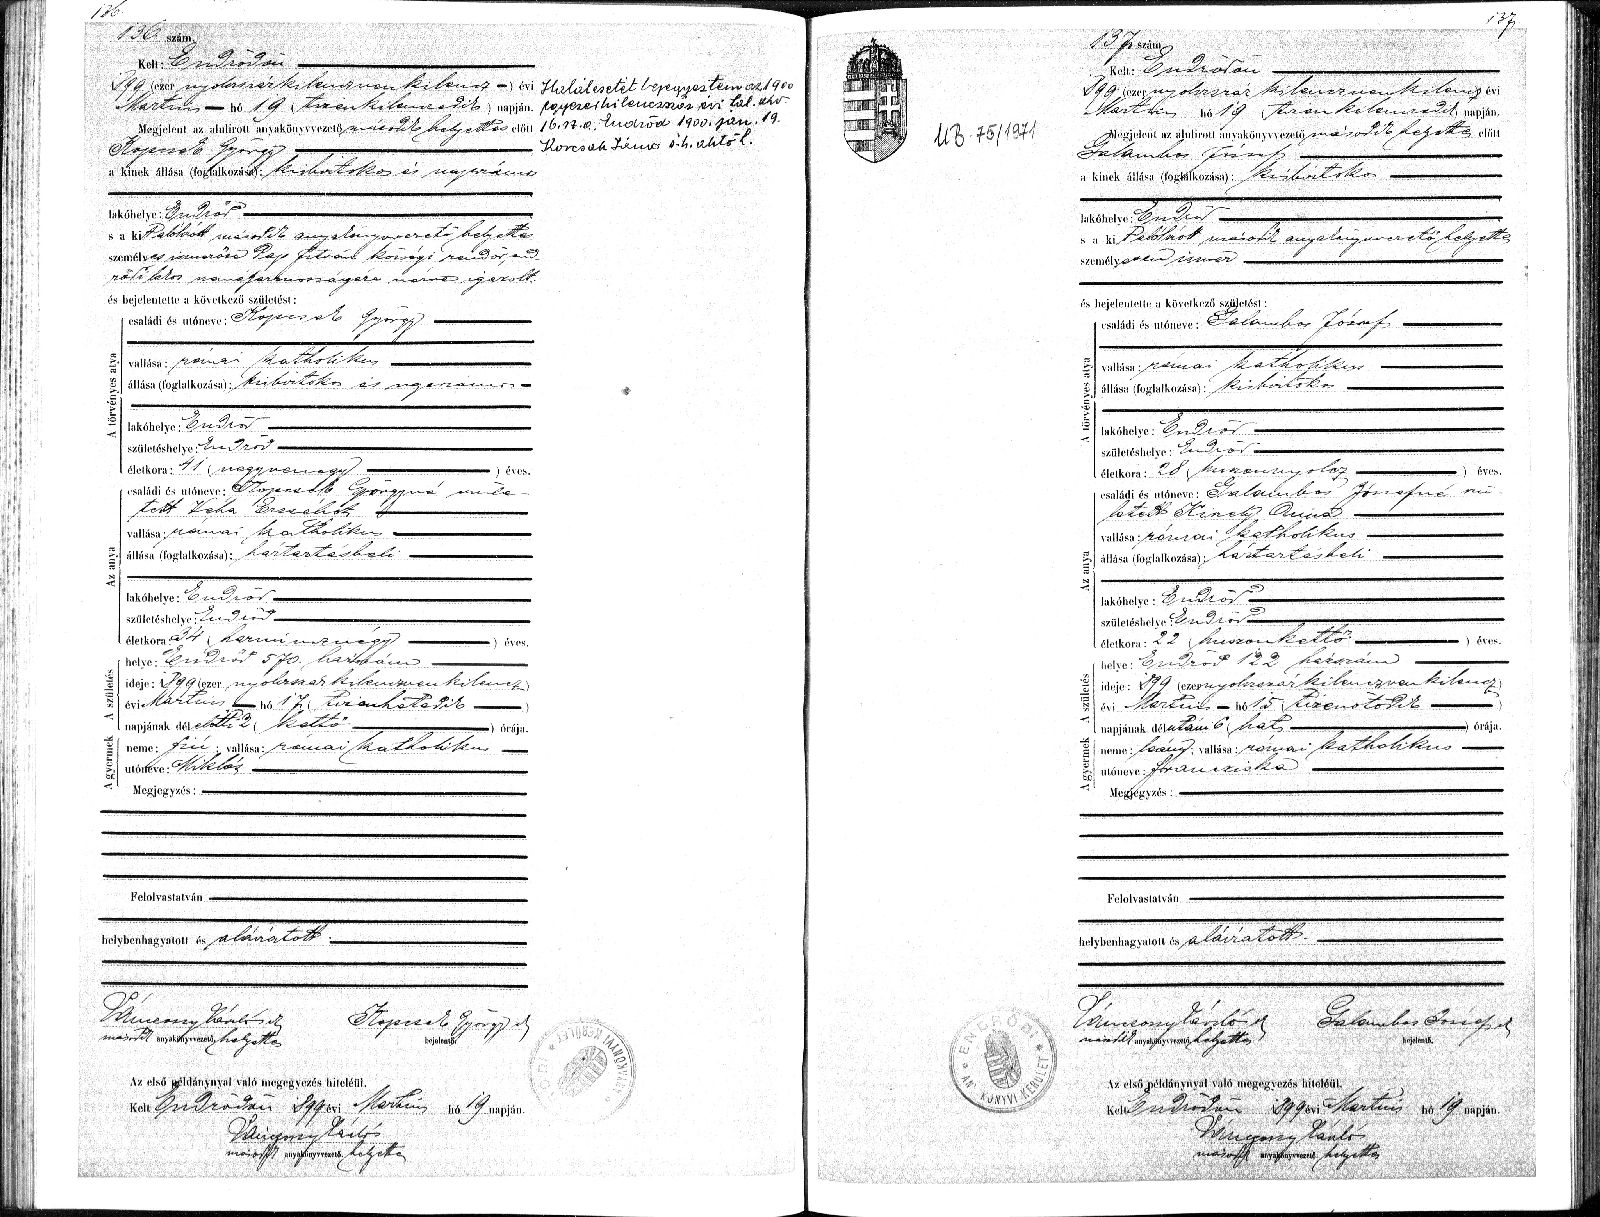 136
136 szám.
Kelt: Endrődön
899 (ezer nyolczszázkilenczvenkilencz) évi
Martius hó 19 (tizenkilenczedik) napján.
Megjelent az alulirott anyakönyvvezető második helyettes előtt
Kopcsek György
a kinek állása (foglalkozása): kisbirtokos és napszámos
lakóhelye: Endrőd
s a ki alólirott második anyakönyvvezető helyettes
személyes ismerőse Pap István községi rendőr, end
rődi lakos
igazolt
és bejelentette a következő születést:
A törvényes atya
családi és utóneve: Kopcsek György
vallása: római katholikus
állása (foglalkozása): kisbirtokos és napszámos
lakóhelye: Endrőd
születéshelye: Endrőd
életkora: 41 (negyvenegy) éves.
Az anya
családi és utóneve: Kopcsek Györgyné szüle-
tett Véha Erzsébet
vallása: római katholikus
állása (foglalkozása): háztartásbeli
lakóhelye: Endrőd
születéshelye: Endrőd
életkora 34 (harmincznégy) éves.
A születés
helye: Endrőd 570. házszám
ideje: 899 (ezer nyolczszázkilenczvenkilencz)
évi Martius hó 17 (tizenhetedik)
napjának délelőtti 2 (kettő) órája.
A gyermek
neme: fiú; vallása: római katholikus
utóneve: Miklós
Megjegyzés:
Felolvastatván
helybenhagyatott és aláiratott.
Váncsony László sk
második anyakönyvvezető helyettes
Kopcsek György sk
bejelentő.
Az első példánynyal való megegyezés hiteléül.
Kelt Endrődön 899 évi Martius hó 19 napján.
Váncsony László
második anyakönyvvezető helyettes
Halálesetét bejegyeztem az 1900
egyezerkilencszáz évi hal. akv.
16. sz. a. Endrőd 1900. jan. 19.
Korcsek János s.h. aktól.
ANYAKÖNYVI KERÜLET
137
137 szám
Kelt: Endrődön
899 (ezer nyolczszáz kilenczvenkilencz évi
Martius hó 19 tizenkilenczedik napján.
Megjelent az alulirott anyakönyvvezető második helyettes előtt
Galambos József
a kinek állása (foglalkozása): kisbirtokos
lakóhelye: Endrőd
s a ki alólirott második anyakönyvvezető helyettes
személyesen ismer
és bejelentette a következő születést:
A törvényes atya
családi és utóneve: Galambos József
vallása: római katholikus
állása (foglalkozása): kisbirtokos
lakóhelye: Endrőd
születéshelye: Endrőd
életkora: 28 (huszonnyolcz) éves.
Az anya
családi és utóneve: Galambos Józsefné szü-
letett Hinek Anna
vallása: római katholikus
állása (foglalkozása): háztartásbeli
lakóhelye: Endrőd
születéshelye: Endrőd
életkora: 22 (huszonkettő) éves.
A születés
helye: Endrőd 122 házszám
ideje: 899 (ezer nyolczszázkilenczvenkilencz)
évi Martius hó 15 (tizenötödik)
napjának délután 6 (hat) órája.
A gyermek
neme: leány; vallása: római katholikus
utóneve: Francziska
Megjegyzés:
Felolvastatván
helybenhagyatott és aláiratott.
Váncsony László sk
második anyakönyvvezető helyettes
Galambos József sk
bejelentő.
Az első példánynyal való megegyezés hiteléül.
Kelt Endrődön 899 évi Martius hó 19 napján.
Váncsony László
második anyakönyvvezető helyettes
UB. 75/1971
ENDRŐDI
ANYAKÖNYVI KERÜLET